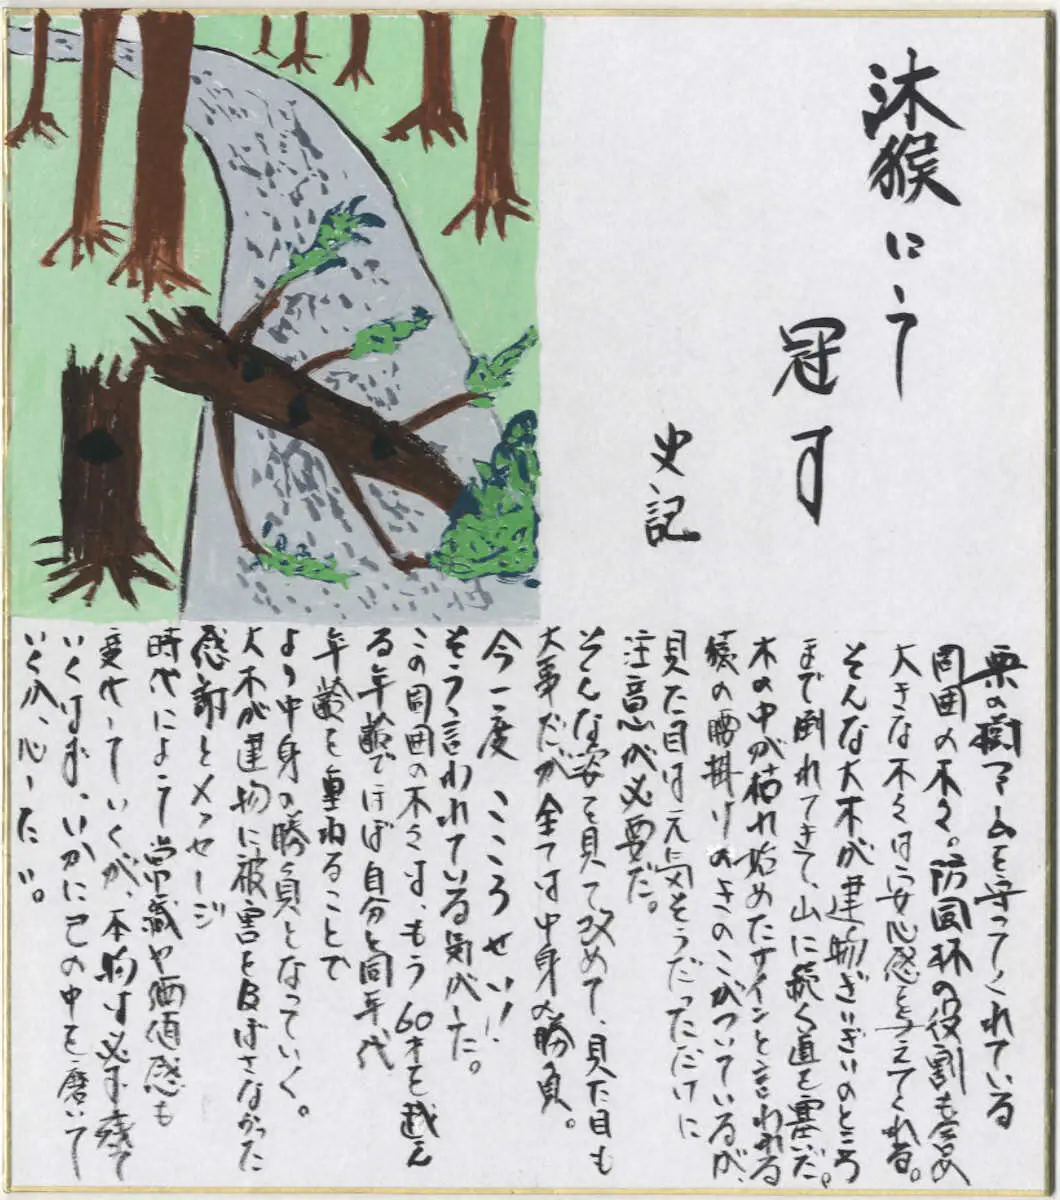 沐猴にして
冠す
史記
栗の樹ファームを守ってくれている
周囲の木々。防風林の役割も含め
大きな木々は安心感を与えてくれる。
そんな大木が建物ぎりぎりのところ
まで倒れてきて、山に続く道を塞いだ。
木の中が枯れ始めたサインと言われる
猿の腰掛けのきのこがついているが、
見た目は元気そうだっただけに
注意が必要だ。
そんな姿を見て改めて、見た目も
大事だが全ては中身の勝負。
今一度 こころせい!!
そう言われている気がした。
この周囲の木々は、もう60才を越え
る年齢でほぼ自分と同年代
年齢を重ねることで
より中身の勝負となっていく。
大木が建物に被害を及ぼさなかった
感謝とメッセージ
時代によって常識や価値感も
変わっていくが、本物は必ず残って
いくはず、いかに己の中を磨いて
いくか、心したい。